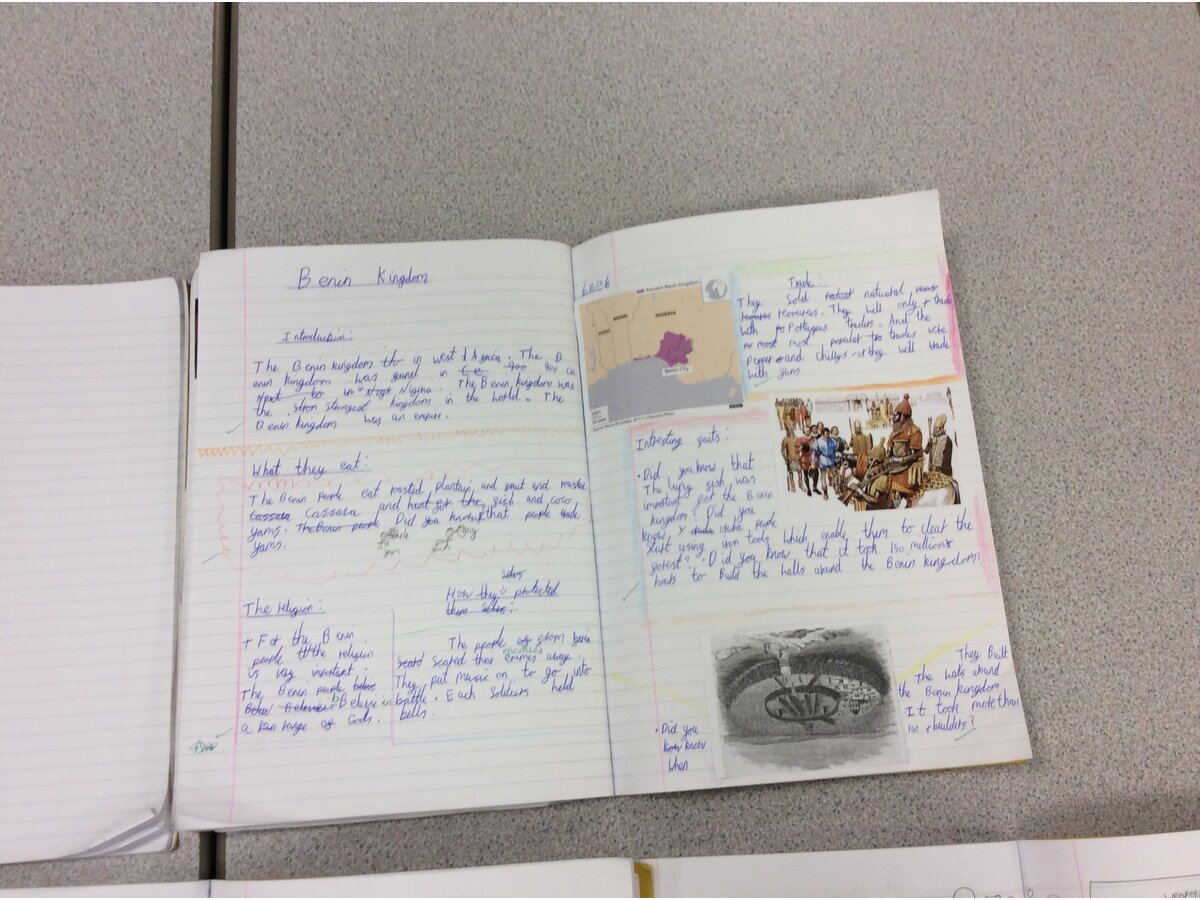 Benin Kingdom
Introduction:
The Benin kingdom in west Africa. The B
enin kingdom was found in 900 ce
in Nigeria. The Benin kingdom was
the strongest kingdom in the world. The
Benin kingdom was an empire.
What they eat:
The Benin people eat roasted plantain and fruit and roasted
Cassava and hunt for fish and coco
yams. Did you know that people trade
yams.
yam
The religion:
For the Benin
people the religion
is very important.
The Benin people
Believe in
a range of Gods.
selves
How they protected
them selves:
The people from benin
Scared their enemies away.
They put music on to go into
battle. Each Soldiers held
bells.
Ancient Benin kingdom
TOGO
BENIN
NIGERIA
Benin City
BBC
Trade:
They sold natural
recourses. They will only trade
with Portugus traders. And the
most popular trades were
Peper and chillys or they will trade
with guns.
Intresting facts:
• Did you know that
The lung fish was
important for the Benin
kingdom? Did you
know people
start using iron tools which enable them to clear the
forest? • Did you know that it took 150 millions
hours to Build the walls around the Benin kingdom?
They Built
The walls around
the Benin kingdom
It took more than
100 builders?
• Did you
know
when